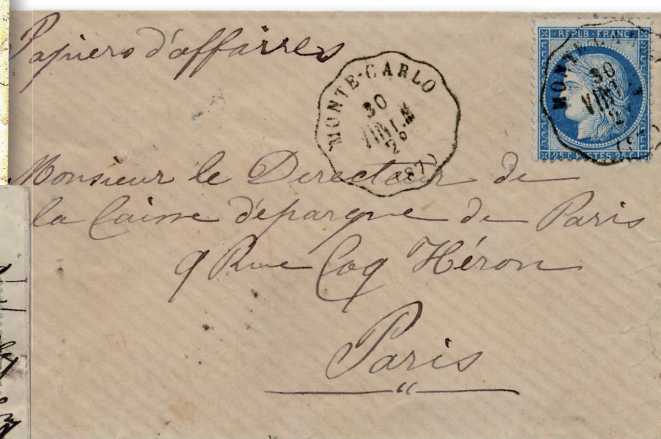 Papiers d'affaires
MONTE-CARLO
30
(87)
REPUB FRANC
25 CENTES 25
MONTE
30
Monsieur le Directeur de
la Caisse d'épargne de Paris
9 Rue Coq Héron
Paris